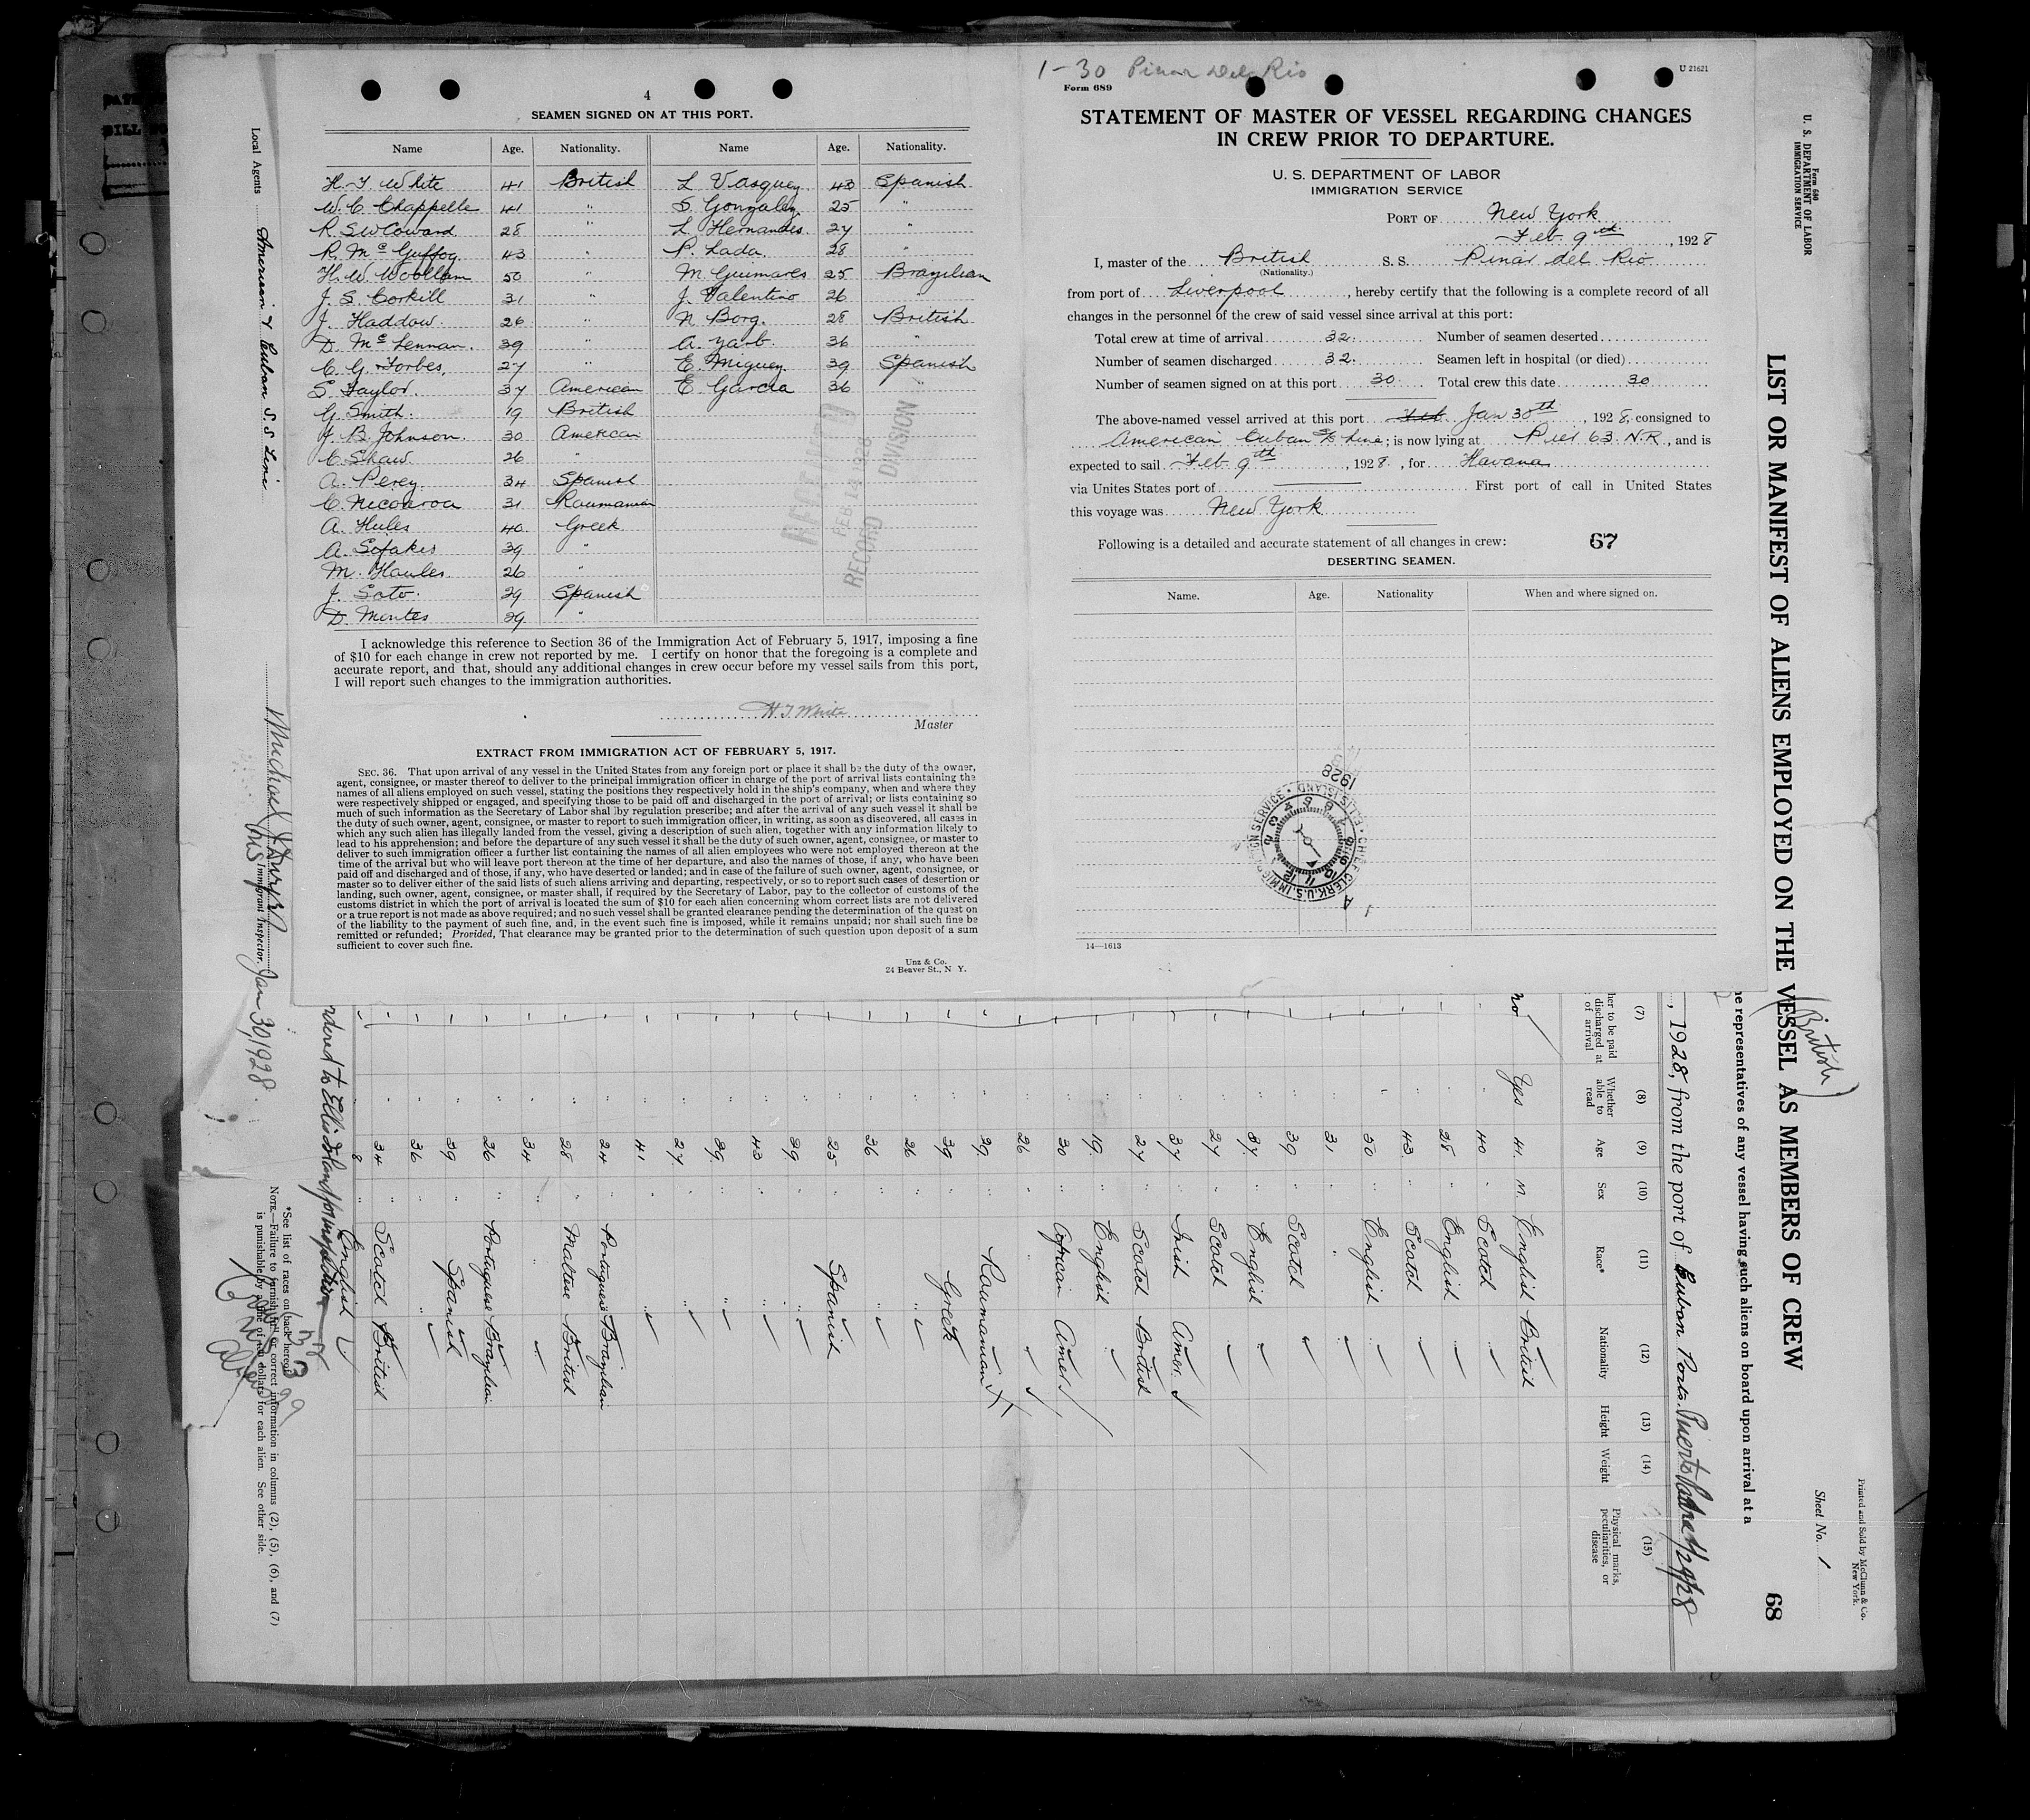 4
SEAMEN SIGNED ON AT THIS PORT.
Name Age. Nationality. Name Age. Nationality.
H. T. White 41 British L Vasquez 43 Spanish
W. C. Chappelle 41 " S. Gonzalez 25 "
R. S. W Coward 28 " L Hernandes 27 "
R. Mc Guffog 43 " P. Lada 28 "
H. W. Woollam 50 " M. Guimares 25 Brazilian
J. S. Corkill 31 " J. Valentino 26 "
J. Haddow. 26 " N Borg. 28 British
D. Mc Lennan. 39 " A. Yarb. 36 "
C. G. Forbes, 27 " E. Miguez 39 Spanish
S. Taylor. 37 American E. Garcia 36 "
G. Smith. 19 British
J. B. Johnson. 30 American
C. Shaw. 26 "
A. Perez. 34 Spanish
C. Nicoaroa 31 Roumanian
A. Hules 40. Greek
A. Sofakis 39 "
M. Haules. 26 "
J. Soto. 29 Spanish
D. Montes 39. "
FEB 14 1928
RECORD DIVISION
I acknowledge this reference to Section 36 of the Immigration Act of February 5, 1917, imposing a fine
of $10 for each change in crew not reported by me. I certify on honor that the foregoing is a complete and
accurate report, and that, should any additional changes in crew occur before my vessel sails from this port,
I will report such changes to the immigration authorities.
H T White
Master
EXTRACT FROM IMMIGRATION ACT OF FEBRUARY 5, 1917.
SEC. 36. That upon arrival of any vessel in the United States from any foreign port or place it shall be the duty of the owner,
agent, consignee, or master thereof to deliver to the principal immigration officer in charge of the port of arrival lists containing the
names of all aliens employed on such vessel, stating the positions they respectively hold in the ship's company, when and where they
were respectively shipped or engaged, and specifying those to be paid off and discharged in the port of arrival; or lists containing so
much of such information as the Secretary of Labor shal by regulation prescribe; and after the arrival of any such vessel it shall be
the duty of such owner, agent, consignee, or master to report to such immigration officer, in writing, as soon as discovered, all cases in
which any such alien has illegally landed from the vessel, giving a description of such alien, together with any information likely to
lead to his apprehension; and before the departure of any such vessel it shall be the duty of such owner, agent, consignee, or master to
deliver to such immigration officer a further list containing the names of all alien employees who were not employed thereon at the
time of the arrival but who will leave port thereon at the time of her departure, and also the names of those, if any, who have been
paid off and discharged and of those, if any, who have deserted or landed; and in case of the failure of such owner, agent, consignee, or
master so to deliver either of the said lists of such aliens arriving and departing, respectively, or so to report such cases of desertion or
landing, such owner, agent, consignee, or master shall, if required by the Secretary of Labor, pay to the collector of customs of the
customs district in which the port of arrival is located the sum of $10 for each alien concerning whom correct lists are not delivered
or a true report is not made as above required; and no such vessel shall be granted clearance pending the determination of the quest on
of the liability to the payment of such fine, and, in the event such fine is imposed, while it remains unpaid; nor shall such fine be
remitted or refunded; Provided, That clearance may be granted prior to the determination of such question upon deposit of a sum
sufficient to cover such fine.
Unz & Co.
24 Beaver St., N Y.
1-30 Pinar Del Rio
Form 689
U 21621
STATEMENT OF MASTER OF VESSEL REGARDING CHANGES
IN CREW PRIOR TO DEPARTURE.
U. S. DEPARTMENT OF LABOR
IMMIGRATION SERVICE
PORT OF New York
Feb. 9th, 1928
I, master of the British S. S. Pinar del Rio
(Nationality.)
from port of Liverpool, hereby certify that the following is a complete record of all
changes in the personnel of the crew of said vessel since arrival at this port:
Total crew at time of arrival 32. Number of seamen deserted
Number of seamen discharged 32. Seamen left in hospital (or died)
Number of seamen signed on at this port 30 Total crew this date 30
The above-named vessel arrived at this port Feb Jan 30th, 1928, consigned to
American Cuban S/S Line; is now lying at Pier 63 N.R, and is
expected to sail Feb 9th, 1928, for Havana
via Unites States port of First port of call in United States
this voyage was New York
Following is a detailed and accurate statement of all changes in crew: 67
DESERTING SEAMEN.
Name. Age. Nationality When and where signed on.
1928
CHIEF CLERK, U.S. IMMIGRATION SERVICE • ELLIS ISLAND •
14—1613
Form 680
U. S. DEPARTMENT OF LABOR
IMMIGRATION SERVICE
LIST OR MANIFEST OF ALIENS EMPLOYED ON THE VESSEL AS MEMBERS OF CREW
(British)
Sheet No. 1
68
Printed and Sold by McClunn & Co.
New York.
e representatives of any vessel having such aliens on board upon arrival at a
, 1928, from the port of Cuban Ports.
(7) (8) (9) (10) (11) (12) (13) (14) (15)
her to be paid discharged at of arrival
Whether able to read
Age
Sex
Race*
Nationality
Height
Weight
Physical marks, peculiarities, or disease
no Yes 41. m. English British
" 40 " Scotch "
" 28 " English "
" 43. " Scotch "
" 50 " English "
" 31 " " "
" 39 " Scotch "
" 37. " English "
" 27 " Scotch "
" 37 " Irish Amer.
" 27 " Scotch British
" 19. " English "
" 30 " African Amer.
" 26 " " "
" 29. " Roumanian
" 39 " Greek
" 26 " "
" 36 " "
" 25 " Spanish
" 39 " "
" 43 " "
" 39. " "
" 27 " "
" 41 " "
" 24 " Portuguese Brazilian
" 28 " Maltese British
" 34 " " "
" 26 " Portuguese Brazilian
" 39 " Spanish
" 36 " "
" 34 " Scotch British
8 " English
dered to Ellis Island for inspection
*See list of races on back hereof.
NOTE.—Failure to furnish full or correct information in columns (2), (5), (6), and (7)
is punishable by a fine of ten dollars for each alien. See other side.
Local Agents American & Cuban S. S Line
Immigrant Inspector. Jan 30, 1928.